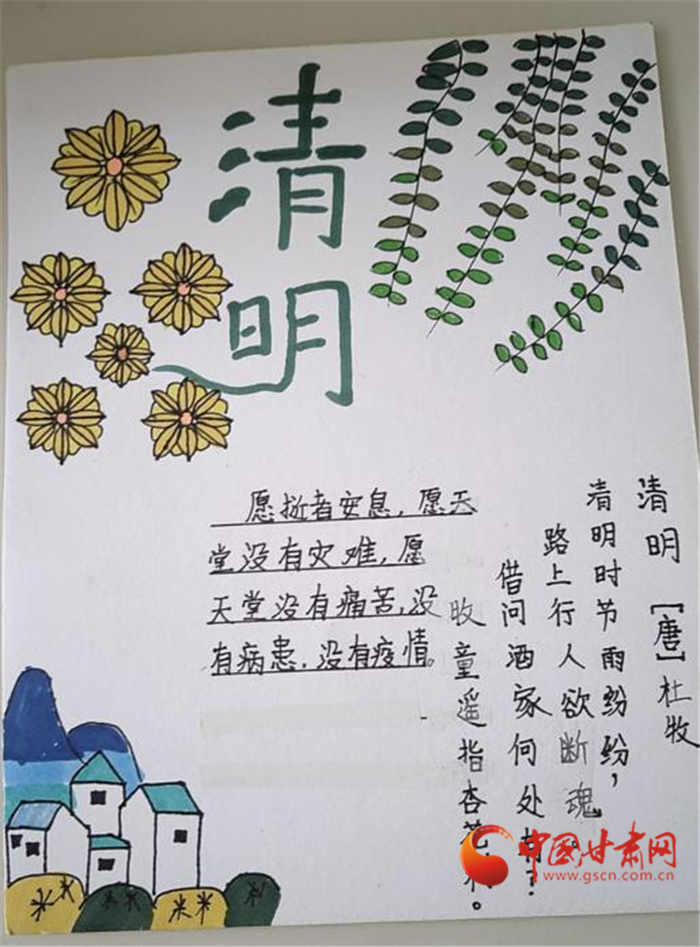 清
明
愿逝者安息，愿天
堂没有灾难，愿
天堂没有痛苦，没
有病患，没有疫情。
清明 [唐] 杜牧
清明时节雨纷纷，
路上行人欲断魂。
借问酒家何处有？
牧童遥指杏花村。
中国甘肃网
www.gscn.com.cn